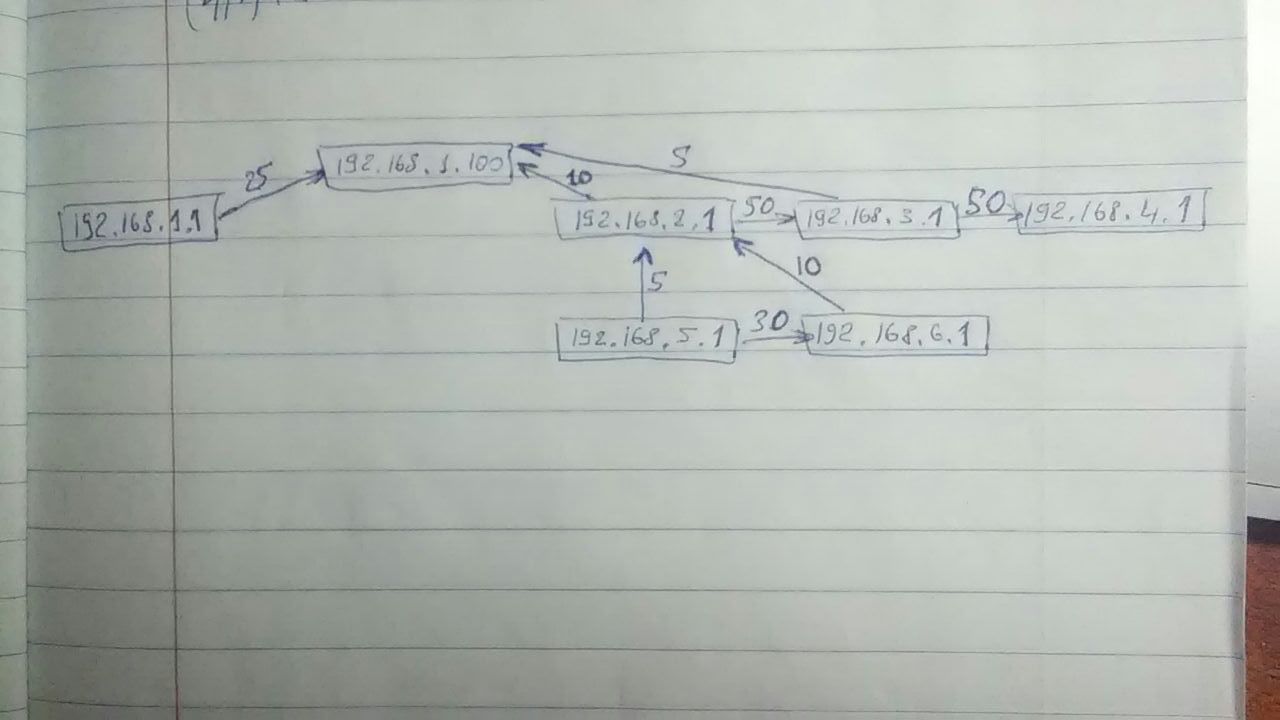 5
192.168.1.100
25
10
192.168.1.1
192.168.2.1
50
192.168.3.1
50
192.168.4.1
10
5
30
192.168.5.1
192.168.6.1